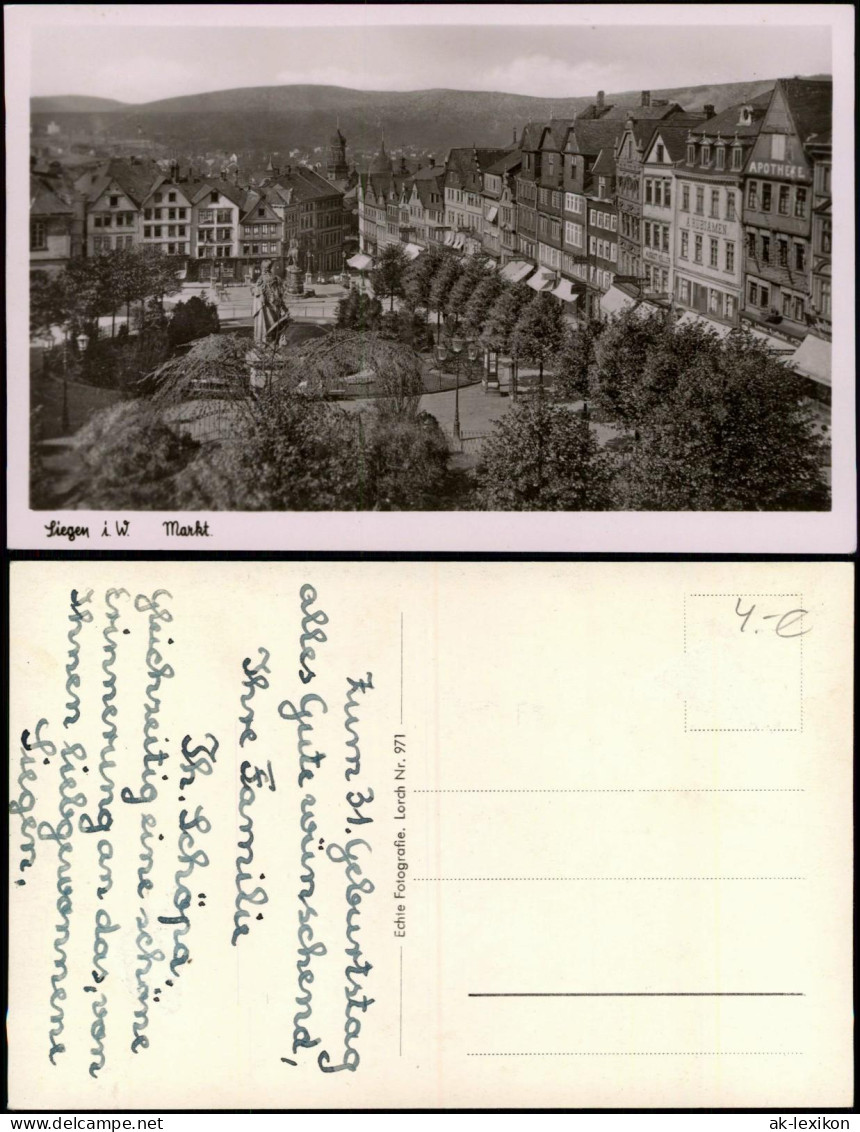 APOTHEKE
Siegen i. W. Markt.
Zum 31. Geburtstag
alles Gute wünschend,
Ihre Familie
Th. Schöpa.
Gleichzeitig eine schöne
Erinnerung an das, von
Ihnen liebgewonnene
Siegen.
Echte Fotografie. Lorch Nr. 971
4.-€
ak-lexikon